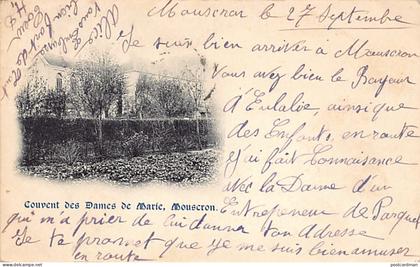 Mouscron le 27 Septembre
Je suis bien arriver à Mouscron
Vous avez bien le Bonjour
d'Eulalie, ainsi que
des Enfants, en route
J'ai fait Connaisance
avec la Dame d'un
Entrepeneur de Parquet
qui m'a prier de lui donner ton Adresse
Je te promet que je me suis bien amuser
en route
Alice
Vous Embrasse
bien fort
Couvent des Dames de Marie, Mouscron.
postcardman